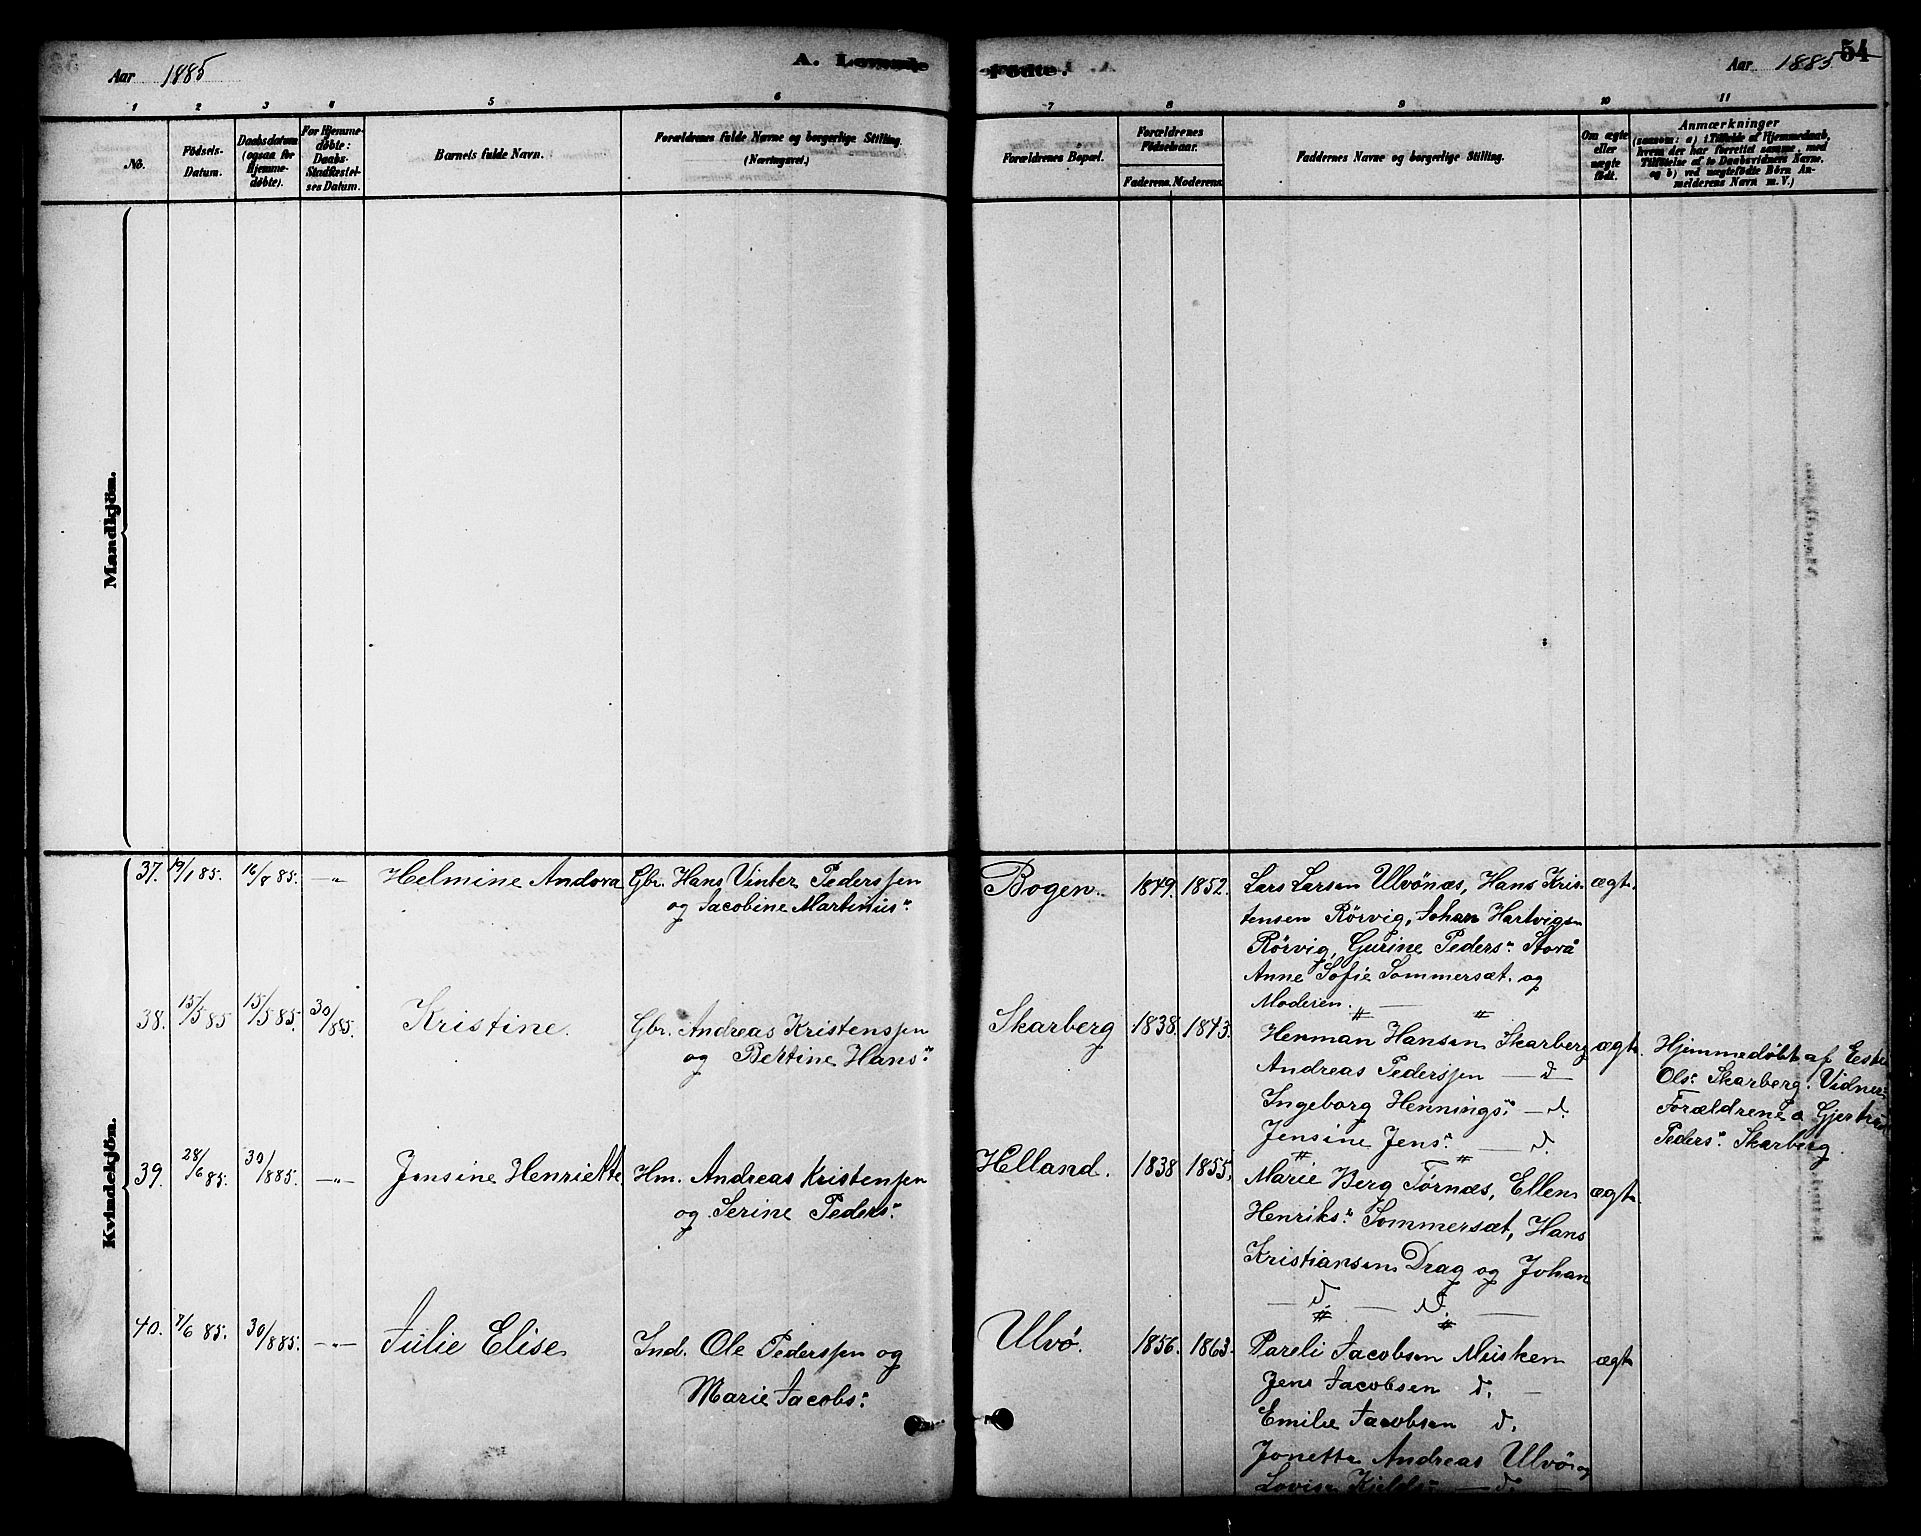 Aar 1885
A. Levende
Födte.
Aar 1885
54
1 2 3 4 5 6
7 8 9 10 11
No.
Födsels-
Datum.
Daabsdatum
(ogsaa for
Hjemme-
döbte).
For Hjemme-
döbte:
Daabs-
Stadfæstel-
ses Datum.
Barnets fulde Navn.
Forældrenes fulde Navne og borgerlige Stilling.
(Næringsvei.)
Forældrenes Bopæl.
Forældrenes
Födselsaar.
Faderens. Moderens.
Faddernes Navne og borgerlige Stilling.
Om ægte
eller
uægte
födt.
Anmærkninger
(saasom: a) i Tilfælde af Hjemmedaab,
hvem der har forrettet samme, med
Tilföielse af to Daabsvidners Navne,
og b) ved uægtefödte Börn An-
melderens Navn m. V.)
Mandkjön.
Kvindekjön.
37. 19/1 85. 16/8 85. —"— Helmine Andova Gbr. Hans Vinter Pederssen
og Jacobine Martinius"
Bogen. 1849. 1852. Lars Larsen Ulvönæs, Hans Kris- ægt.
tensen Rörvig, Johan Hartvigsn
Rörvig, Gurine Peders" Storå
Anne Sofie Sommersæt. og
Moderen.
38. 15/5 85 15/5 85. 30/8 85. Kristine. Gbr. Andreas Kristenssen
og Bertine Hans"
Skarberg 1838. 1843. Herman Hansen Skarberg ægt.
Andreas Pederssen — d —
Ingeborg Hennings" — d.
Jensine Jens" — d.
Hjemmedöbt af
Ols" Skarberg. Vidner
Forældrene o Gjertrud
Peders" Skarberg.
39. 28/6 85. 30/8 85. —"— Jensine Henriette Hm. Andreas Kristenssen
og Serine Peders"
Helland. 1838 1855. Marie Berg Törnæs, Ellen ægt.
Henriks" Sommersæt, Hans
Kristiansen Drag og Johan
— d. — d. —
40. 7/6 85. 30/8 85. —"— Julie Elise Ind. Ole Pederssen og
Marie Jacobs"
Ulvö. 1856. 1863. Pareli Jacobsen Musken ægt
Jens Jacobsen d. —
Emilie Jacobsen d.
Jonette Andreas Ulvö og
Lovise Kjelds" — d. —